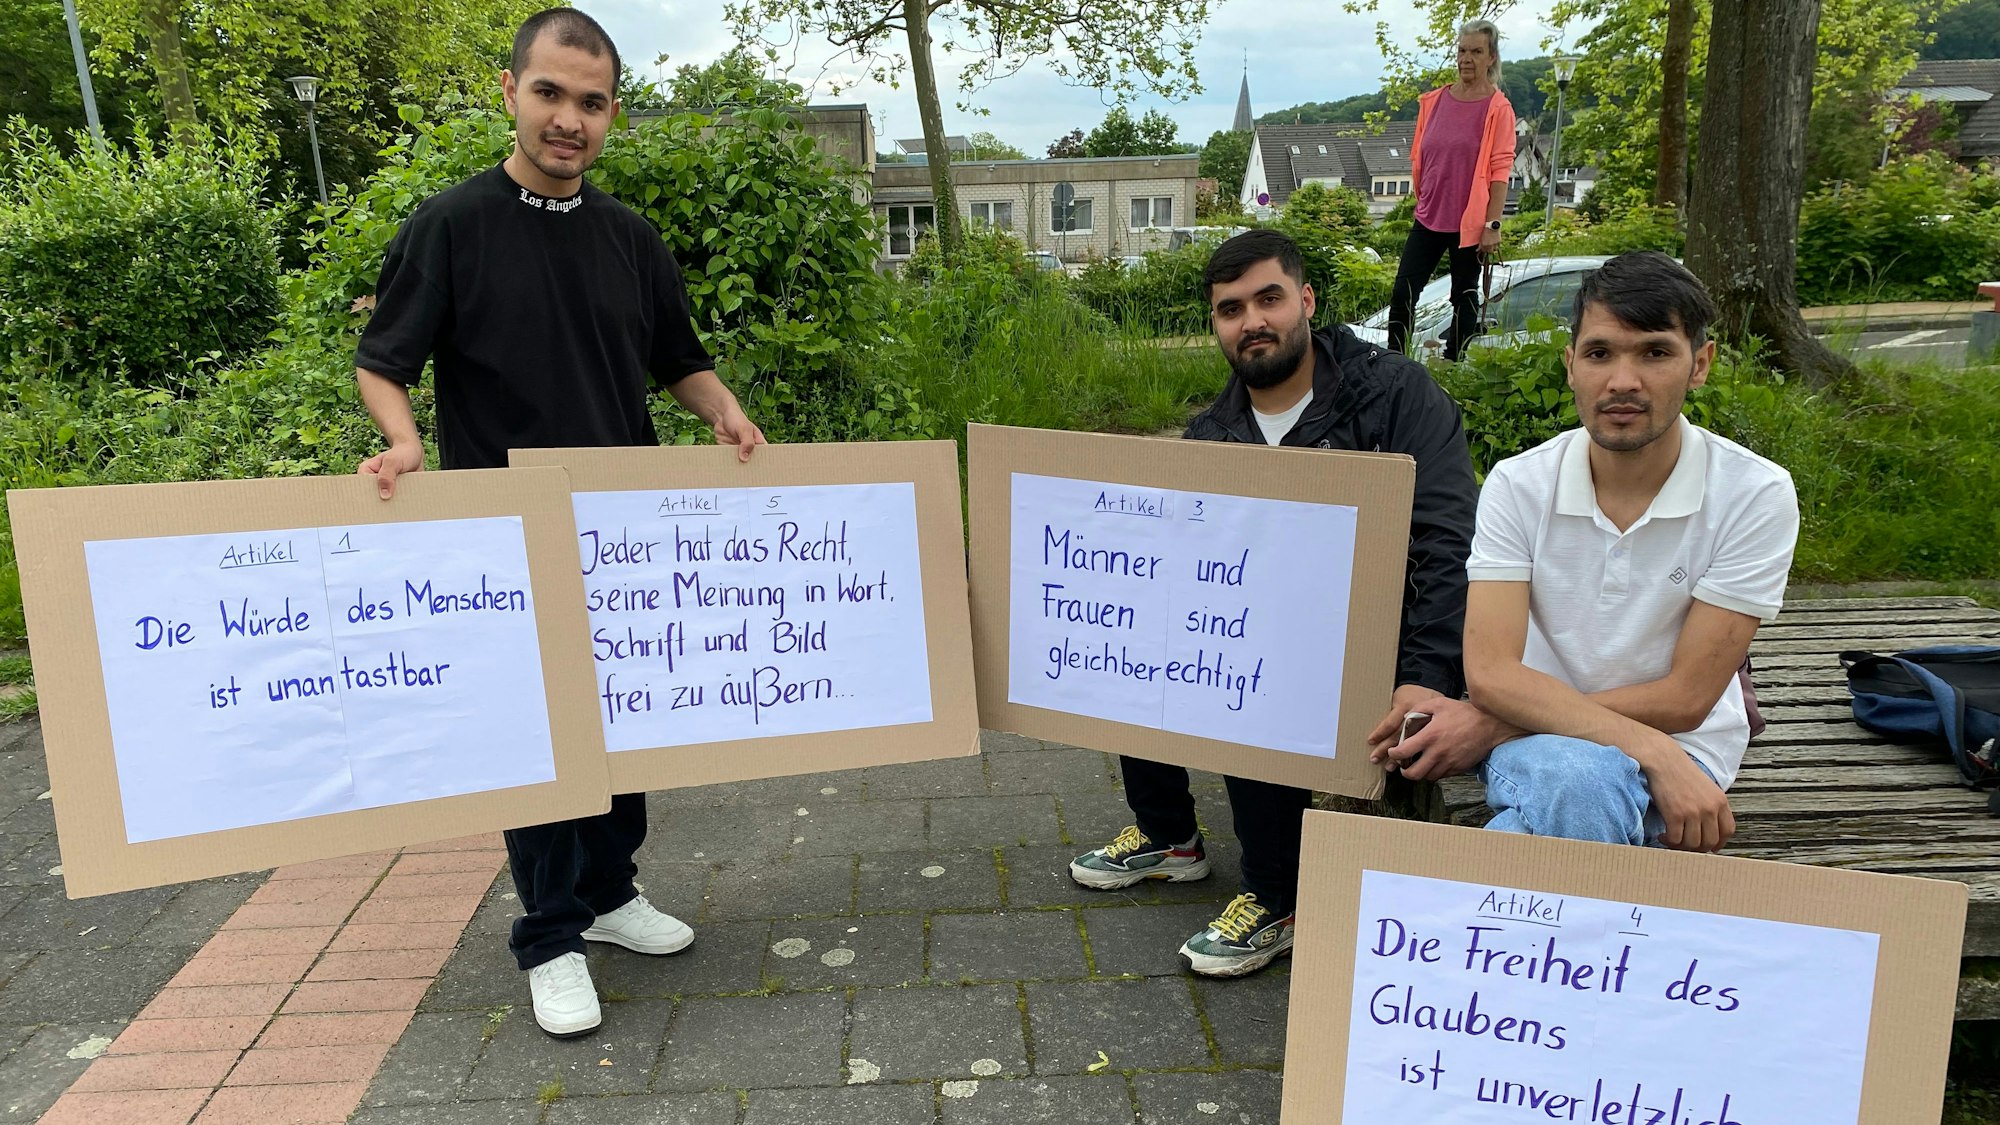 Los Angeles
Artikel 1
Die Würde des Menschen
ist unantastbar
Artikel 5
Jeder hat das Recht,
seine Meinung in Wort,
Schrift und Bild
frei zu äußern...
Artikel 3
Männer und
Frauen sind
gleichberechtigt.
Artikel 4
Die Freiheit des
Glaubens
ist unverletzlich